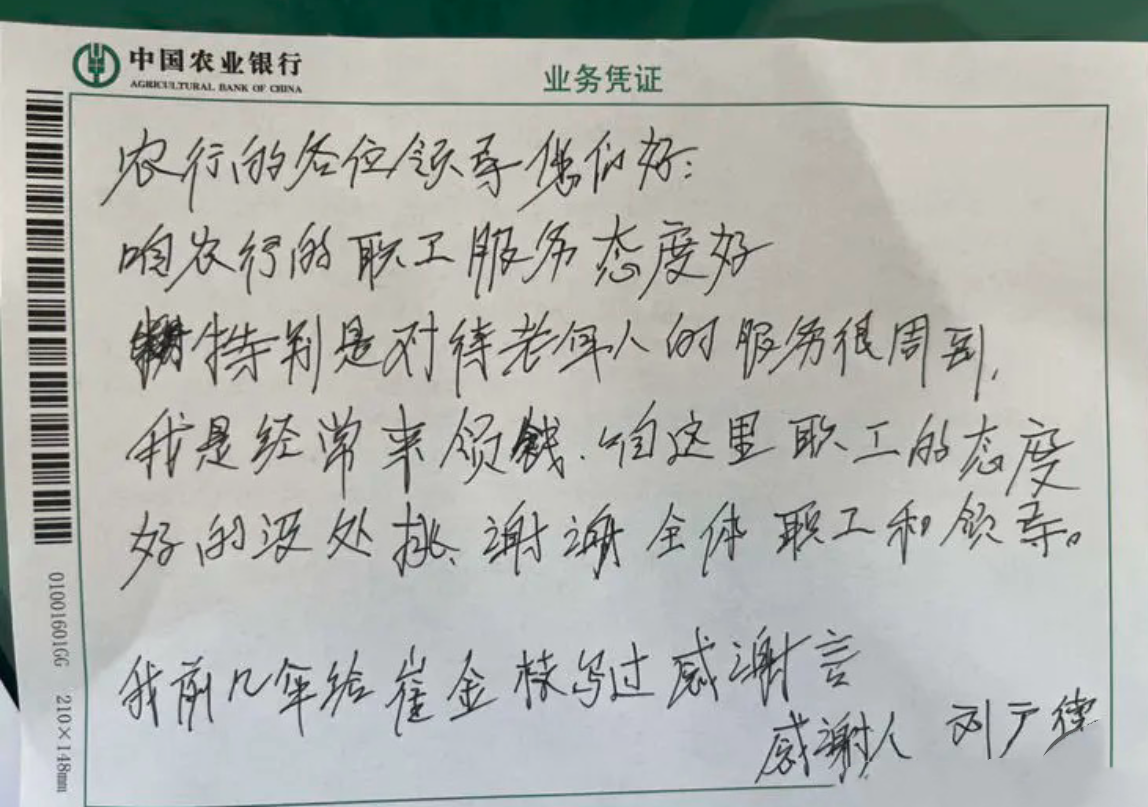 中国农业银行
AGRICULTURAL BANK OF CHINA
业务凭证
农行的各位领导您们好:
咱农行的职工服务态度好
特别是对待老年人的服务很周到,
我是经常来领钱.咱这里职工的态度
好的没处挑、谢谢全体职工和领导。
我前几年给崔金枝写过感谢言
感谢人 刘广德
01001601GG 210×148mm